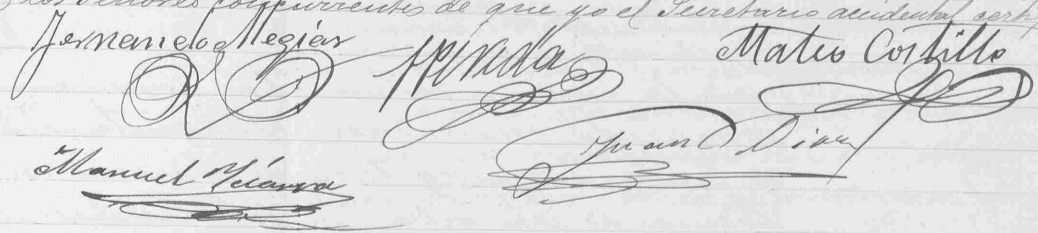 los Señores concurrentes de que yo el Secretario accidental certi
Fernando Megías Pineda Mateo Costillo
Juan Diaz
Manuel